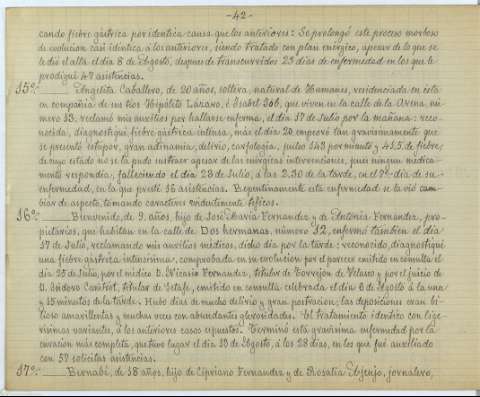 -42-
cando fiebre gástrica por identica causa que los anteriores: Se prolongó este proceso morboso
de evolucion casi identica á los anteriores, siendo tratado con plan enérgico, apesar de lo que se
le dió el alta el dia 8 de Agosto, despues de transcurridos 23 dias de enfermedad en los que le
prodigué 47 asistencias.
15º- Angelita Caballero, de 20 años, soltera, natural de Humanes, residenciada en ésta
en compañia de sus tios Hipólito Lázaro, é Isabel que viven en la calle de la Arena, nú-
mero 13, reclamó mis auxilios por hallarse enferma, el dia 17 de Julio por la mañana: reco-
nocida, diagnostiqué fiebre gástrica intensa, más el dia 20 empeoró tan gravisimamente que
se presentó estupor, gran adinamia, delirio, carfologia, pulso 143 por minuto y 41,5 de fiebre,
de cuyo estado no se la pudo sustraer apesar de las enérgicas intervenciones, pues ningun médica-
mento respondia, falleciendo el dia 28 de Julio, á las 2,30 de la tarde, en el dia de su
enfermedad, en la que presté 16 asistencias. Repentinamente esta enfermedad se la vió cam-
biar de aspecto, tomando caractéres evidentemente tificos.
16º- Bienvenido, de 9 años, hijo de José Maria Fernandez y de Antonia Fernandez, pro-
pietarios, que habitan en la calle de Dos hermanas, número 12, enfermó tambien el dia
17 de Julio, reclamando mis auxilios médicos, dicho dia por la tarde: reconocido, diagnostiqué
una fiebre gástrica intensisima, comprobada en su evolucion por el parecer emitido en consulta el
dia 25 de Julio, por el médico D. Nicasio Fernandez, titular de Torrejon de Velasco y por el juicio de
D. Isidoro titular de Getafe, emitido en consulta celebrada el dia 6 de Agosto á la una
y 15 minutos de la tarde. Hubo dias de mucho delirio y gran postracion; las deposiciones eran bi-
lioso amarillentas y muchas veces con abundantes glerosidades. El tratamiento identico con lige-
risimas variantes, á los anteriores casos espuestos. Terminó esta gravisima enfermedad por la
curacion más completa, que tuvo lugar el dia 13 de Agosto, á los 28 dias, en los que fué auxiliado
con 57 solicitas asistencias.
17º- Bernabé, de 18 años, hijo de Cipriano Fernandez y de Rosalia jornalero,